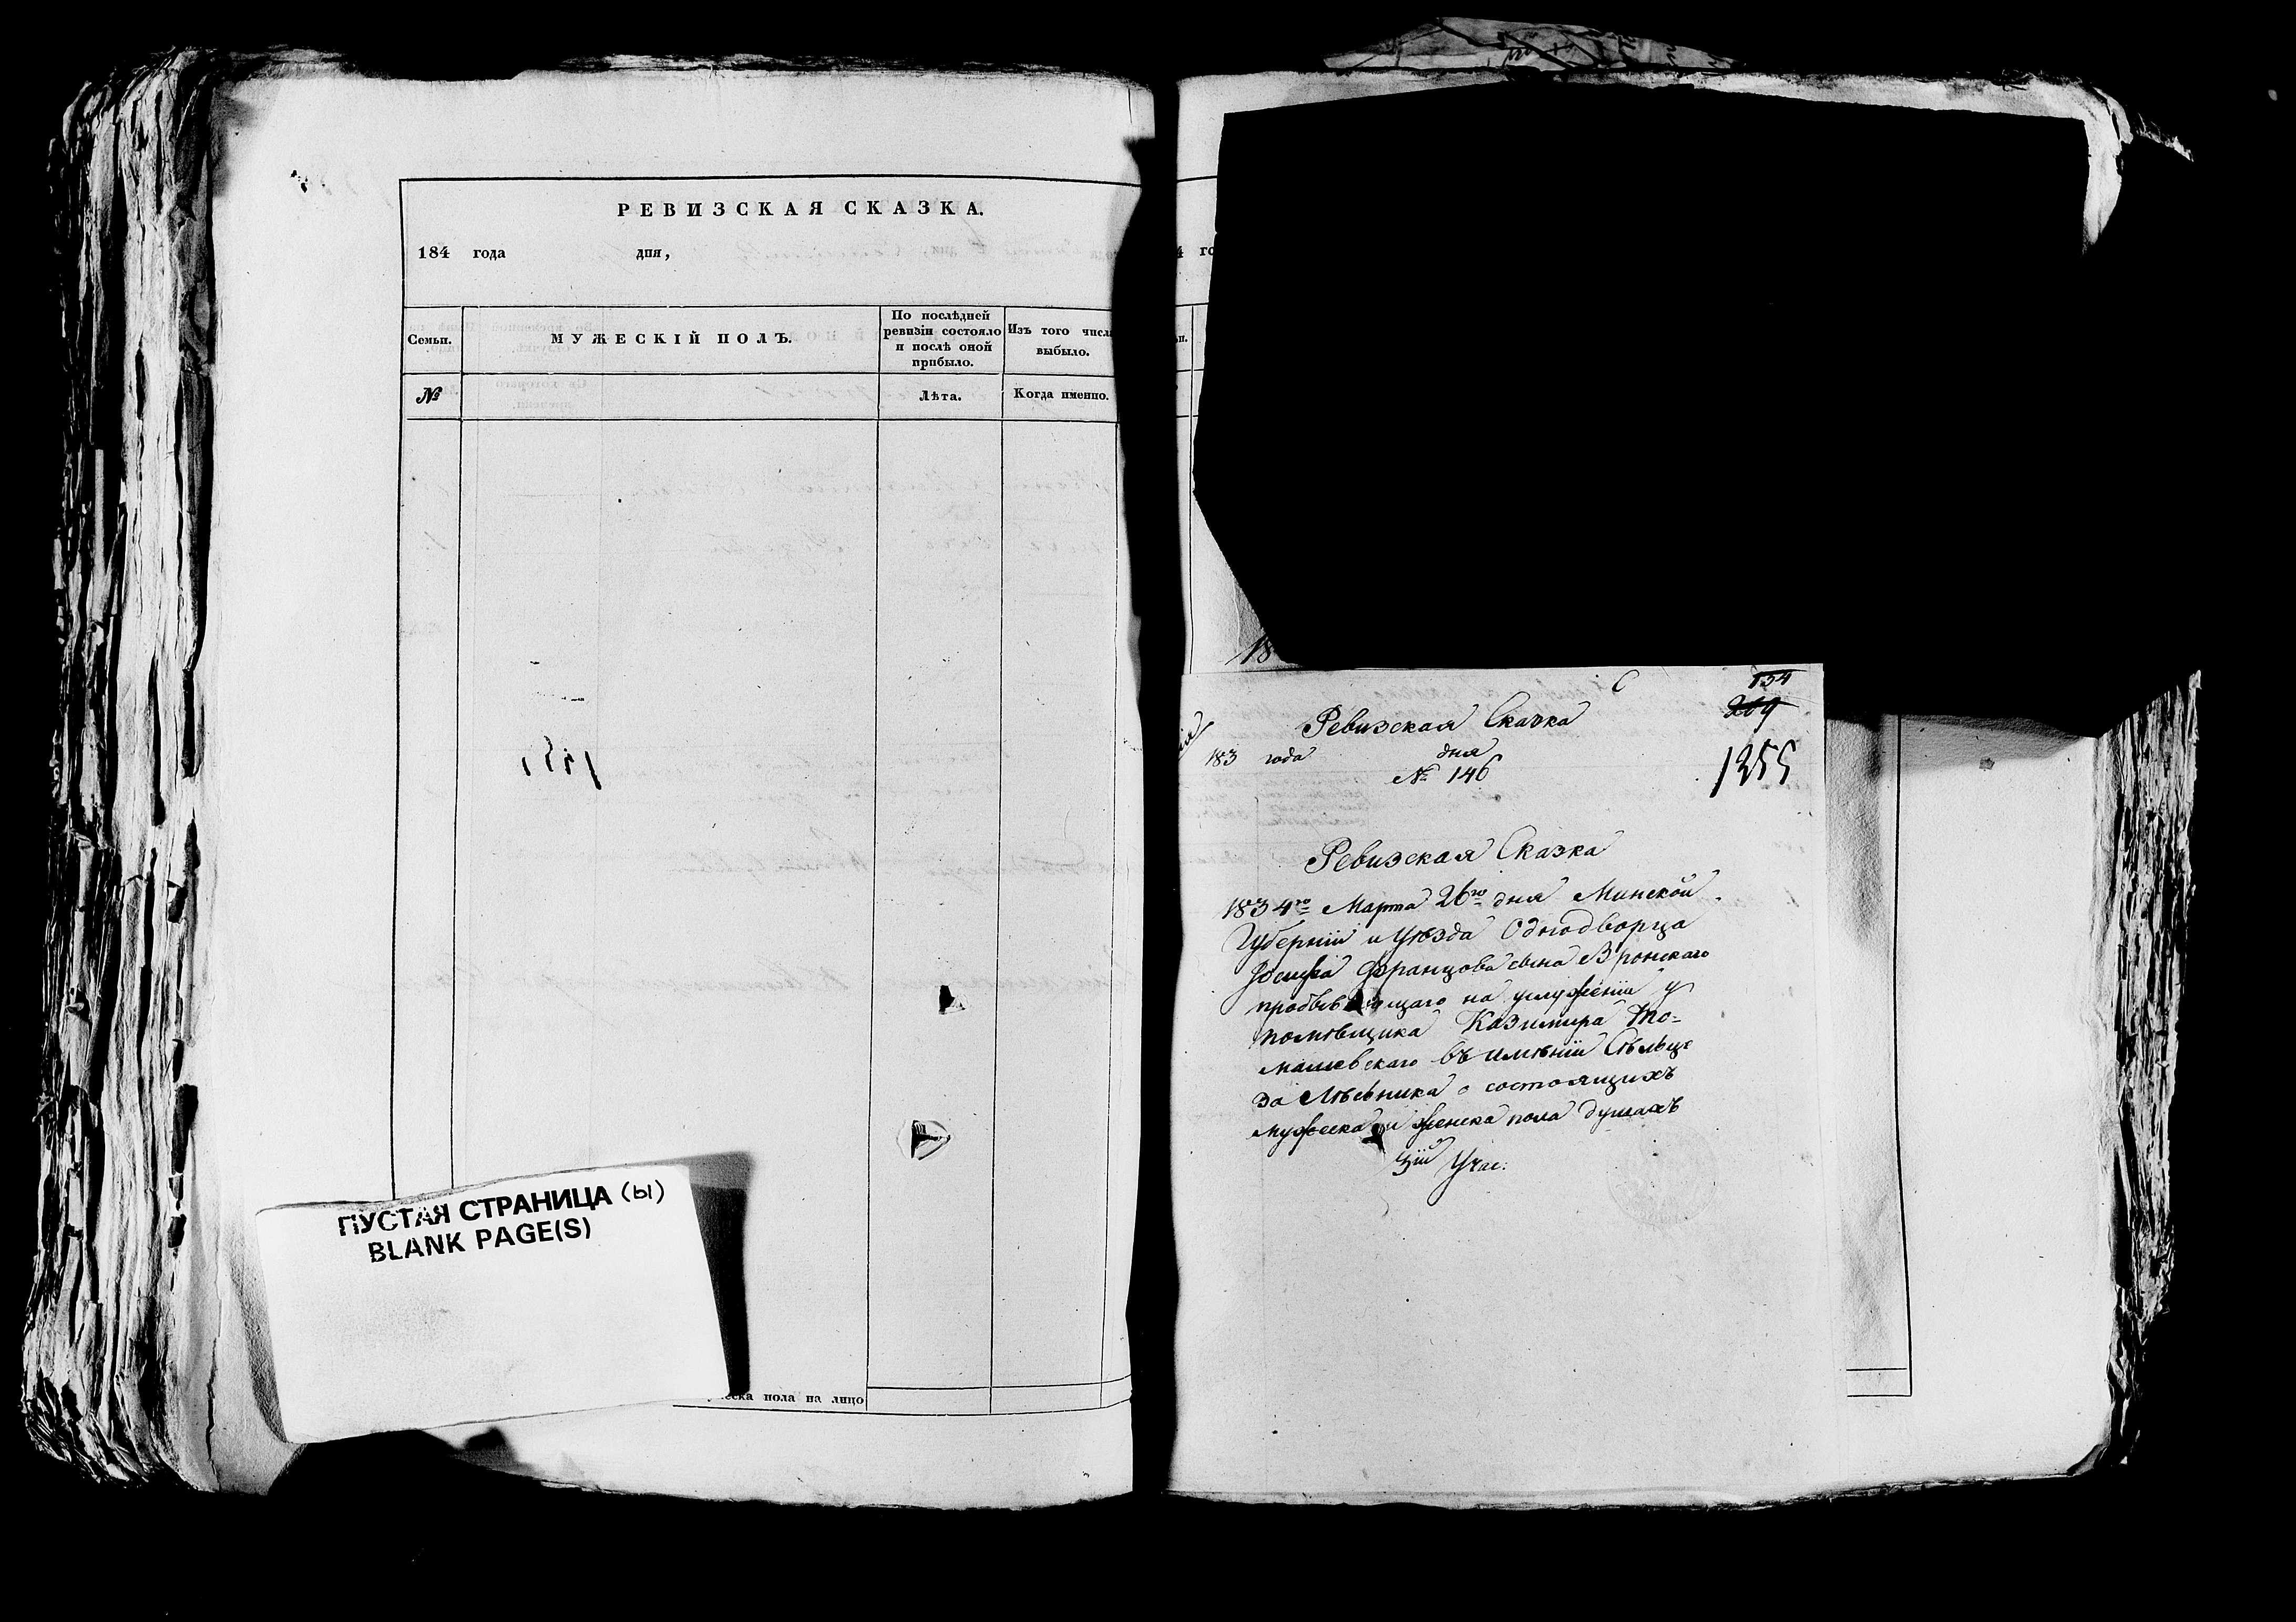 РЕВИЗСКАЯ СКАЗКА.
184 года дня,
Семьи.
МУЖЕСКІЙ ПОЛЪ.
По послѣдней
ревизіи состояло
и послѣ оной
прибыло.
Изъ того числ
выбыло.
№
Лѣта.
Когда именно.
ПУСТАЯ СТРАНИЦА (ы)
BLANK PAGE(S)
ска пола на лицо
4 го
18
134
269
Ревизская Сказка
183 года дня
№ 146
1355
Ревизская Сказка
1834го Марта 26го дня Минской
Губерніи и Уѣзда Однодворца
Іосифа Францова сына Вронскаго
пробывающаго на услуженіи у
помѣщика Казимира То=
машевскаго въ имѣніи Сѣльце
за Лѣсника о состоящихъ
мужеска и женска пола душахъ
3ій Учас: